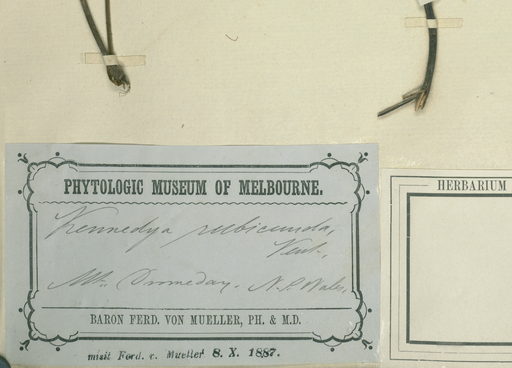 PHYTOLOGIC MUSEUM OF MELBOURNE.
Kennedya rubicunda,
Vent.
Mt. Dromeday. N. S. Wales,
BARON FERD. VON MUELLER, PH. & M.D.
misit Ferd. v. Mueller 8. X. 1887.
HERBARIUM